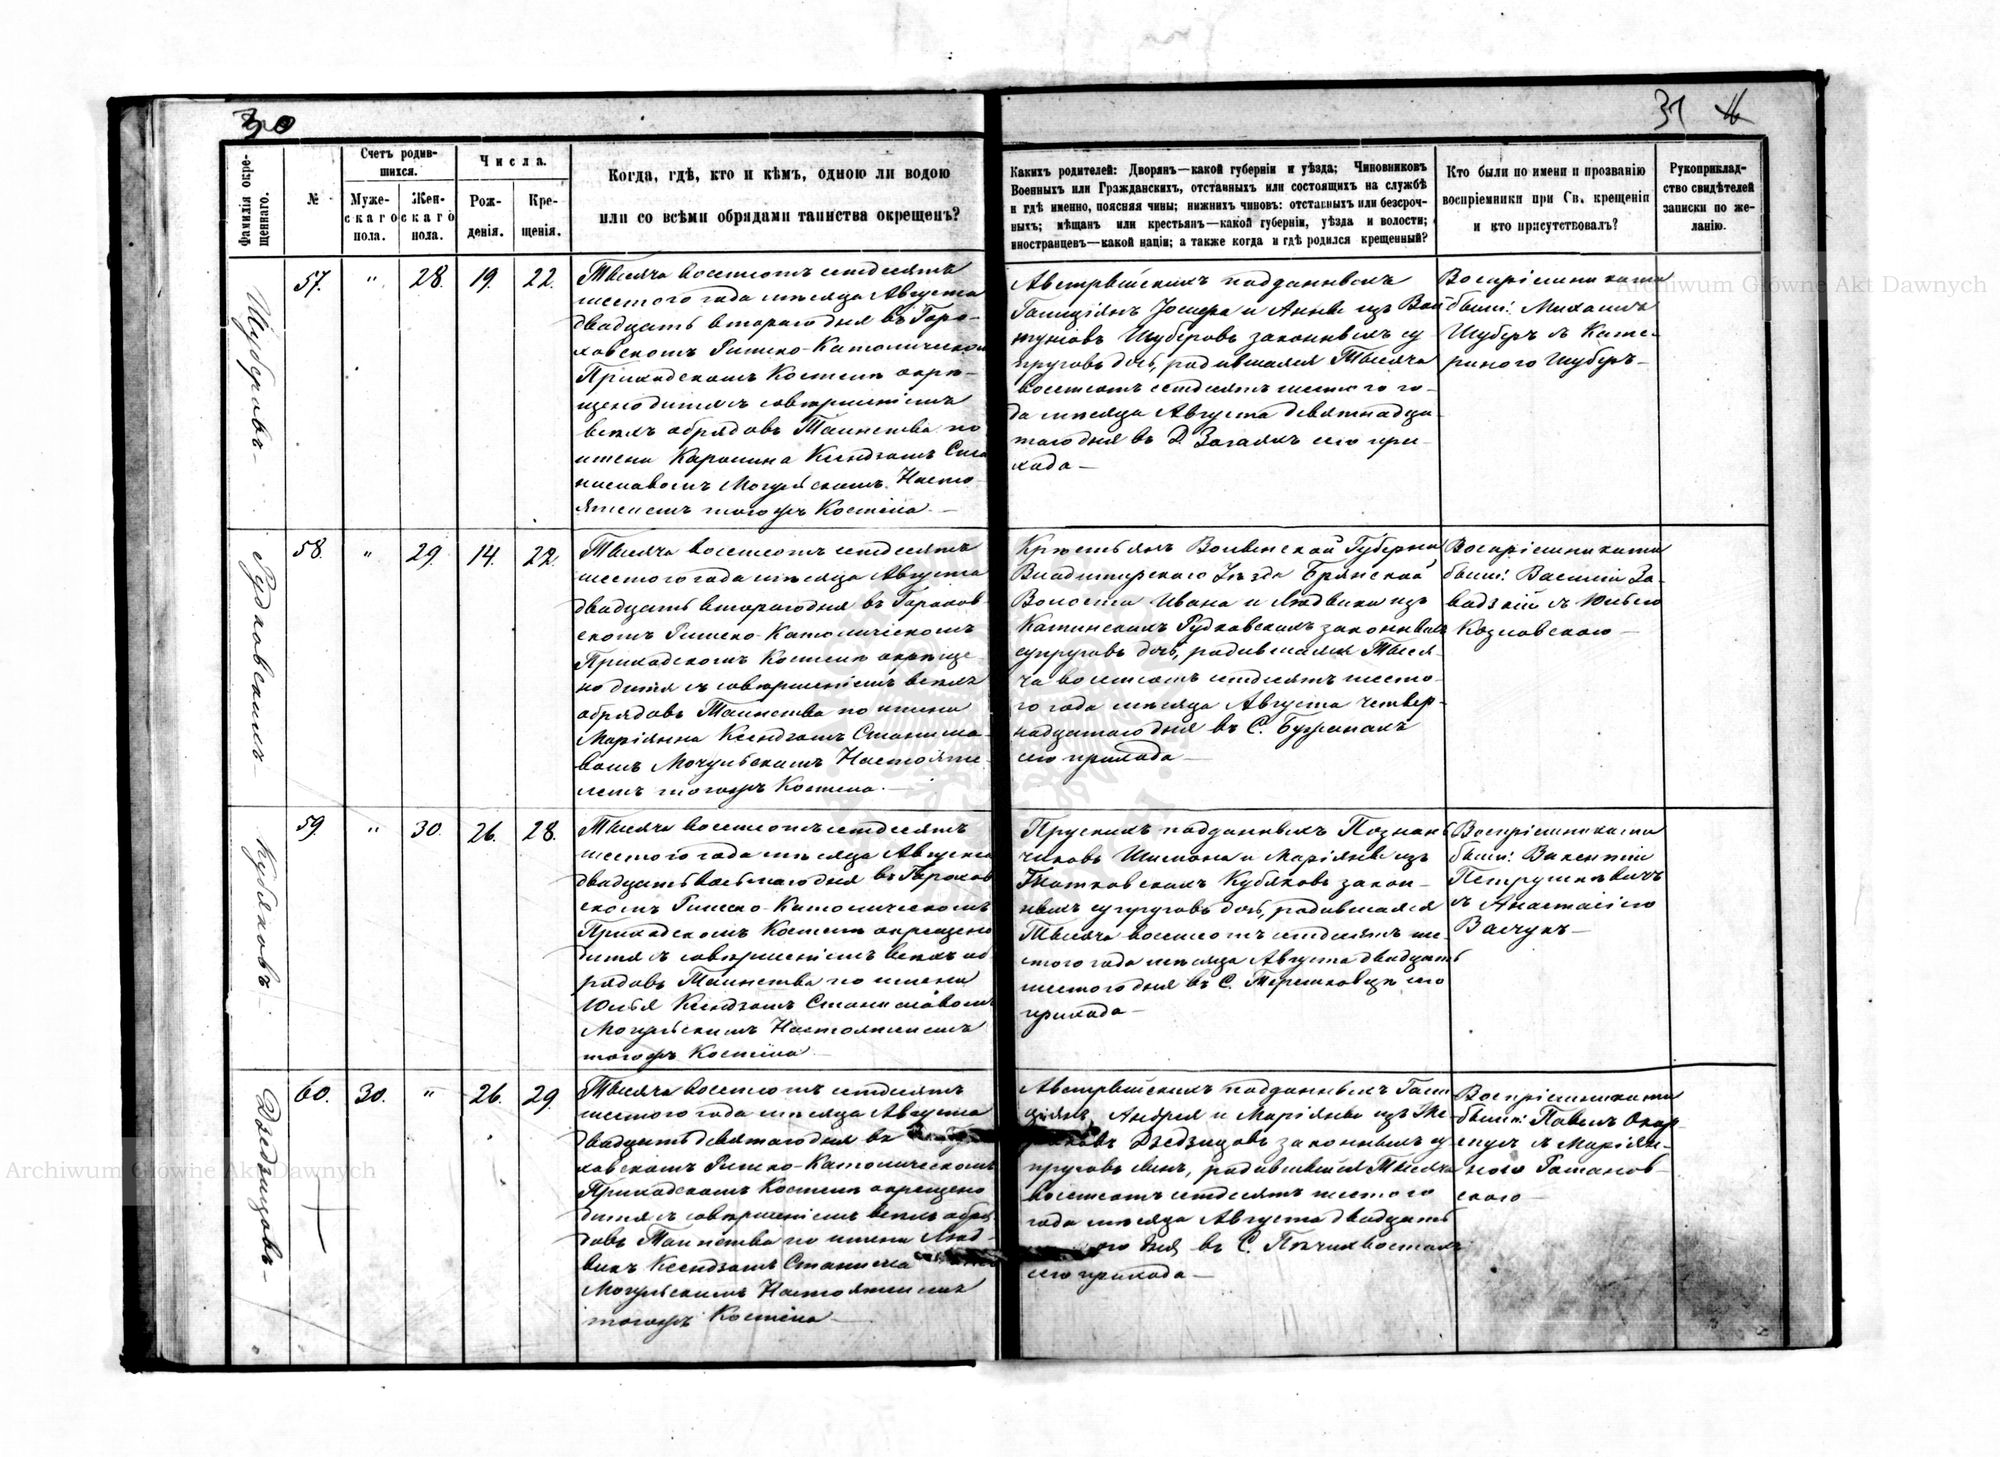 30
31
Фамилія окре-
щеннаго.
№
Счетъ родив-
шихся.
Муже-
скаго
пола.
Жен-
скаго
пола.
Числа.
Рож-
денія.
Кре-
щенія.
Когда, гдѣ, кто и кѣмъ, одною ли водою
или со всѣми обрядами таинства окрещенъ?
Каких­ъ родителей: Дворянъ—какой губерніи и уѣзда; Чиновниковъ
Военныхъ или Гражданскихъ, отставныхъ или состоящихъ на службѣ
и гдѣ именно, поясняя чины; нижнихъ чиновъ: отставныхъ или безсроч-
ныхъ; мѣщанъ или крестьянъ—какой губерніи, уѣзда и волости;
иностранцевъ—какой націи; а также когда и гдѣ родился крещенный?
Кто были по имени и прозванію
воспріемники при Св. крещеніи
и кто присутствовалъ?
Рукоприклад-
ство свидѣтелей
записки по же-
ланію.
Шуберовъ
57.
"
28.
19.
22.
Тысяча восемсотъ семдесятъ
шестого года мѣсяца Августа
двадцать второго дня въ Горо-
ховскомъ Римско-Католическом
Приходскомъ Костелѣ окре-
щено дитя съ совершеніемъ
всѣхъ обрядовъ Таинства по
имени Каролина Ксендзомъ Ста
ниславомъ Могульскимъ Насто-
ятелемъ тогожъ Костёла.
Австрійскихъ подданныхъ
Галиціянъ Іосифа и Анны изъ Вай
туховъ Шуберовъ законныхъ су
пруговъ дочь, родившаяся Тысяча
восемсотъ семдесятъ шестого го-
да мѣсяца Августа девятнадца
таго дня въ Д. Загаяхъ сего при-
хода—
Воспріемниками
были: Михаилъ
Шуберъ съ Кате-
риною Шуберъ—
Рудковскихъ
58.
"
29.
14.
22.
Тысяча восемсотъ семдесятъ
шестого года мѣсяца Августа
двадцать второго дня въ Горохов-
скомъ Римско-Католическомъ
Приходскомъ Костелѣ окреще-
но дитя съ совершеніемъ всѣхъ
обрядовъ Таинства по имени
Маріянна Ксендзомъ Станисла-
вомъ Могульскимъ Настояте-
лемъ тогожъ Костела.
Крестьянъ Волынской Губерніи
Владимірскаго Уѣзда Брянской
Волости Ивана и Людвики изъ
Калинскихъ Рудковскихъ законныхъ
супруговъ дочь, родившаяся Тыся-
ча восемсотъ семдесятъ шесто-
го года мѣсяца Августа четвер-
надцатаго дня въ С. Бужанахъ
сего прихода—
Воспріемниками
были: Василій За-
вадзкій съ Юліею
Козловскою—
Кубяковъ
59.
"
30.
26.
28.
Тысяча восемсотъ семдесятъ
шестого года мѣсяца Августа
двадцать восьмаго дня въ Горохов
скомъ Римско-Католическомъ
Приходскомъ Костелѣ окрещено
дитя съ совершеніемъ всѣхъ об
рядовъ Таинства по имени
Юлія Ксендзомъ Станиславомъ
Могульскимъ Настоятелемъ
тогожъ Костёла—
Прускихъ подданныхъ Познан
чиковъ Шимона и Маріянны изъ
Кубяковъ закон-
ныхъ супруговъ дочь, родившаяся
Тысяча восемсотъ семдесятъ ше-
стого года мѣсяца Августа двадцать
шестого дня въ С. Терешковцѣ сего
прихода—
Воспріемниками
были: Валентій
Петрушкевичъ
съ Анастасіею
Валчукъ—
Дзедзицовъ
60.
30.
"
26.
29.
Тысяча восемсотъ семдесятъ
шестого года мѣсяца Августа
двадцать девятаго дня въ
ховскомъ Римско-Католическомъ
Приходскомъ Костелѣ окрещено
дитя съ совершеніемъ всѣхъ обря
довъ Таинства по имени Люд-
викъ Ксендзомъ Станисла
Могульскимъ Настоятелемъ
тогожъ Костёла—
Австрійскихъ подданныхъ Гали
ціянъ Андрея и Маріянны изъ
Дзедзицовъ законныхъ су
пруговъ сынъ, родившійся Тысяча
восемсотъ семдесятъ шестого
года мѣсяца Августа двадцать
го дня въ С. Пѣчихвостахъ
сего прихода—
Воспріемниками
были: Павелъ
съ Маріян-
ною Гатанов-
скою—
Archiwum Główne Akt Dawnych
Archiwum Główne Akt Dawnych